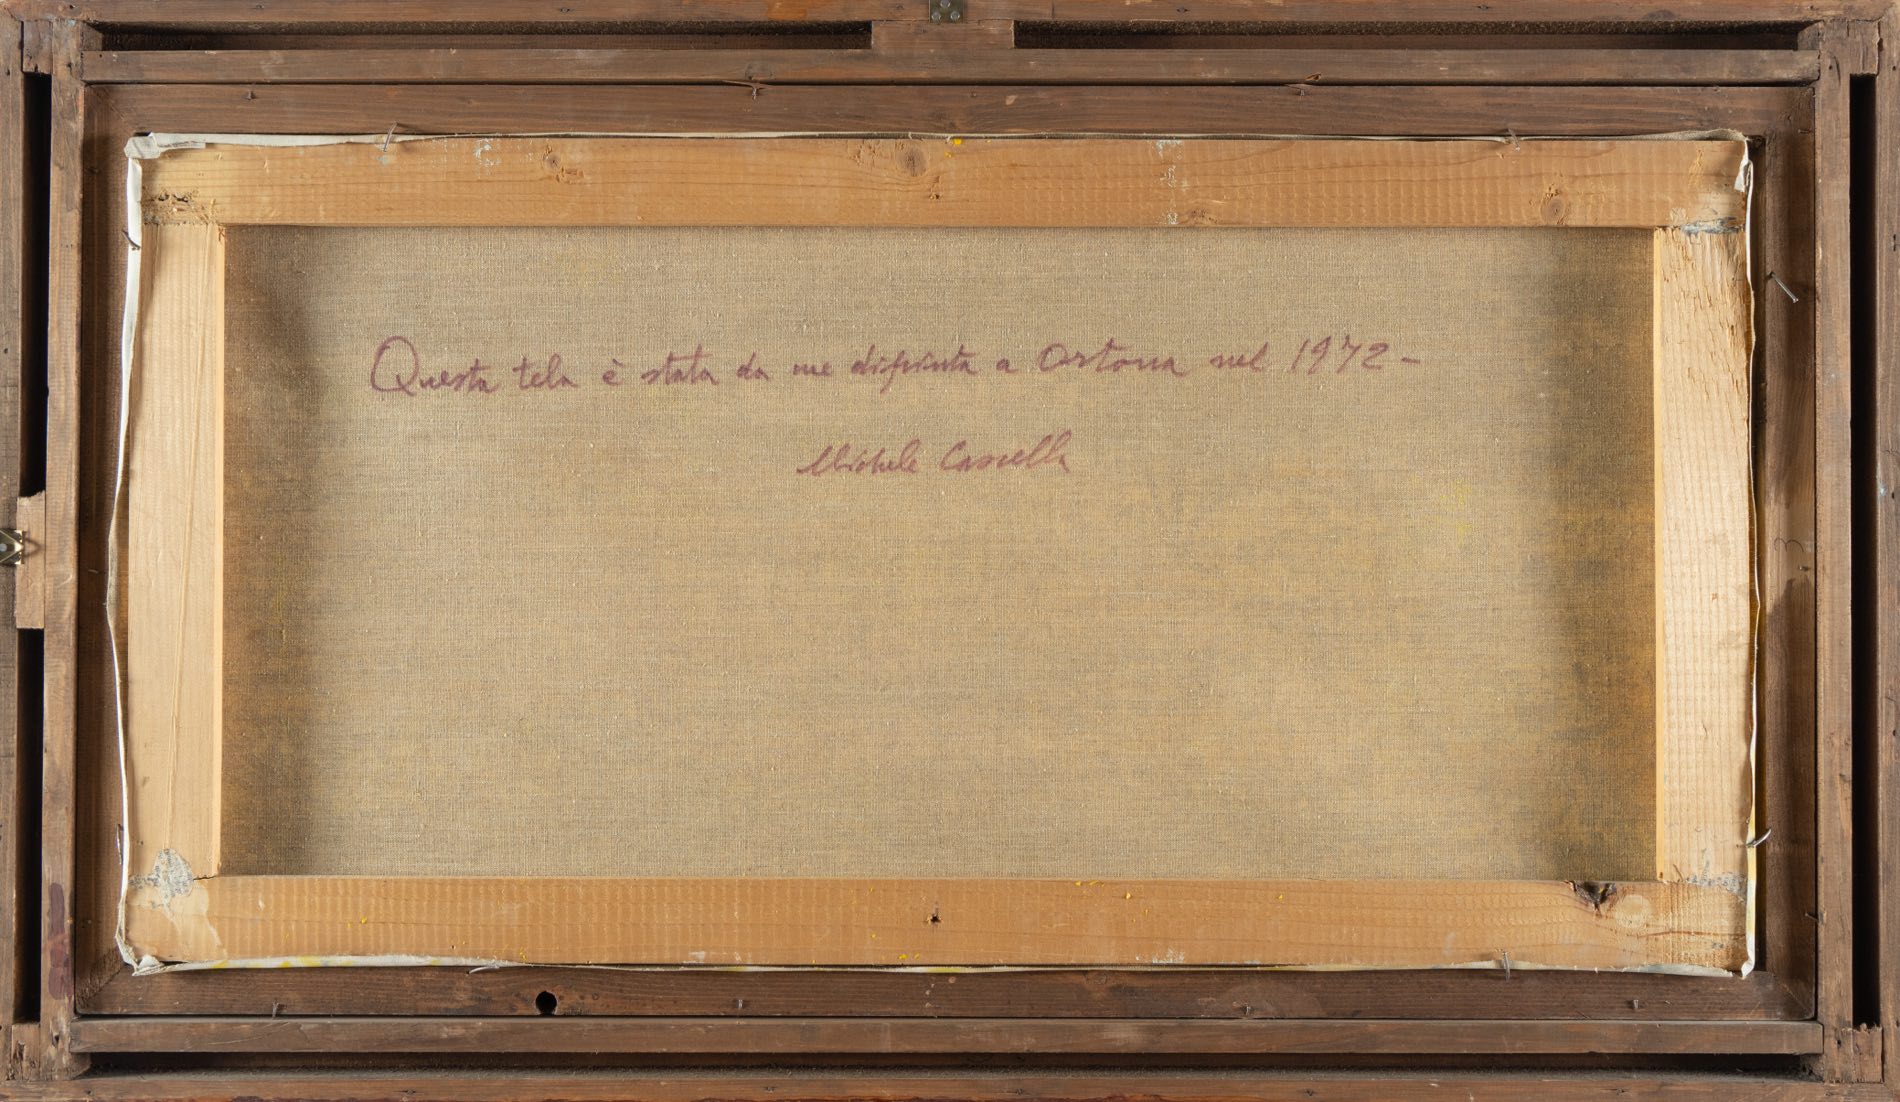 Questa tela è stata da me dipinta a Ortona nel 1972-
Michele Cascella